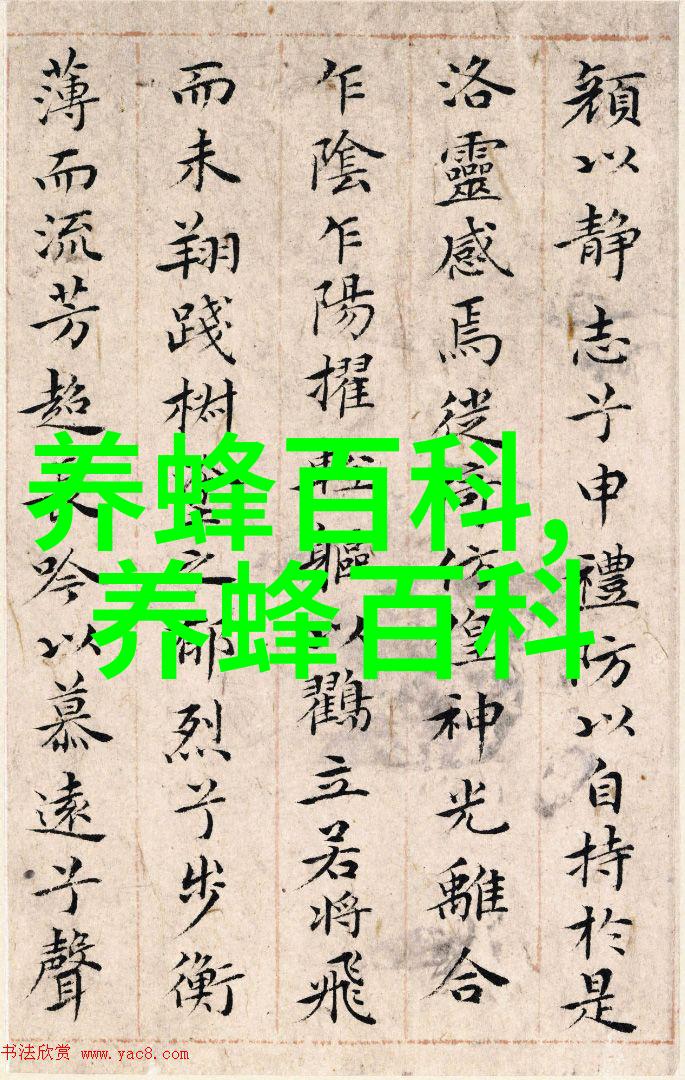 顏以静志兮申禮防以自持於是
洛靈感焉徙倚仿偟神光離合
乍陰乍陽擢輕軀以鶴立若将飛
而未翔踐椒塗之郁烈兮步衡
薄而流芳超長吟以慕遠兮聲
养蜂百科,
养蜂百科
书法欣赏 www.yac8.com